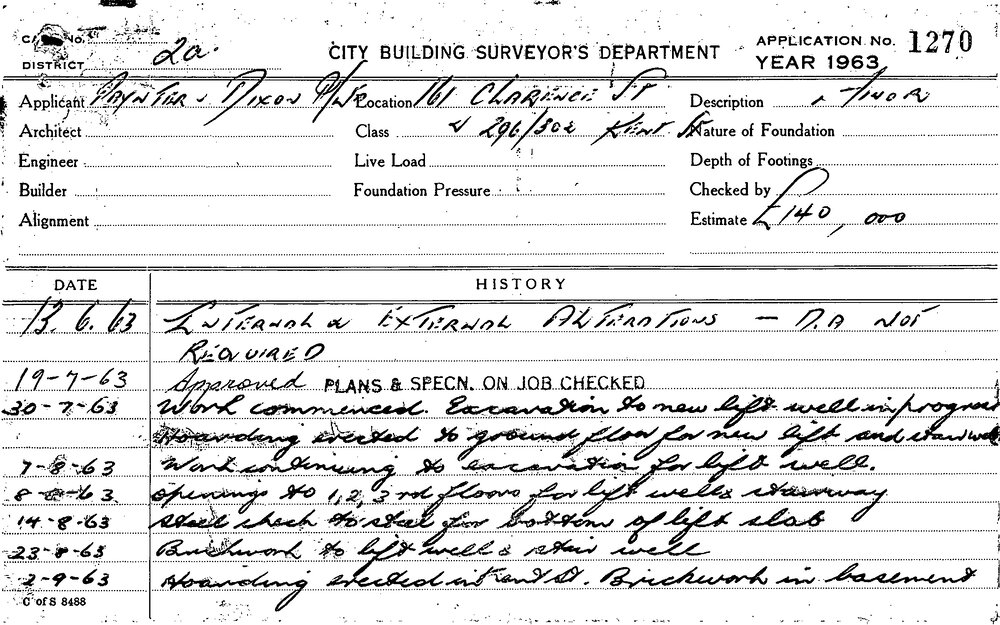 No.
DISTRICT 2a.
CITY BUILDING SURVEYOR'S DEPARTMENT
APPLICATION No. 1270
YEAR 1963
Applicant PAYNTER & DIXON P/L Location 161 CLARENCE ST Description ALTNOR
Architect Class & 296/302 KENT ST Nature of Foundation
Engineer Live Load Depth of Footings
Builder Foundation Pressure Checked by
Alignment Estimate £140,000
DATE HISTORY
13.6.63 INTERNAL & EXTERNAL ALTERATIONS — D.A NOT
REQUIRED
19-7-63 Approved PLANS & SPECN. ON JOB CHECKED
30-7-63 Work commenced. Excavation to new lift well in progress
Hoarding erected to ground floor for new lift and stair well
7-8-63 Work continuing to excavation for lift well.
8-8-63 openings to 1, 2, 3rd floors for lift well & stairway
14-8-63 steel check to steel for bottom of lift slab
23-8-63 Brickwork to lift well & stair well
2-9-63 Hoarding erected in Kent St. Brickwork in basement
C of S 8488